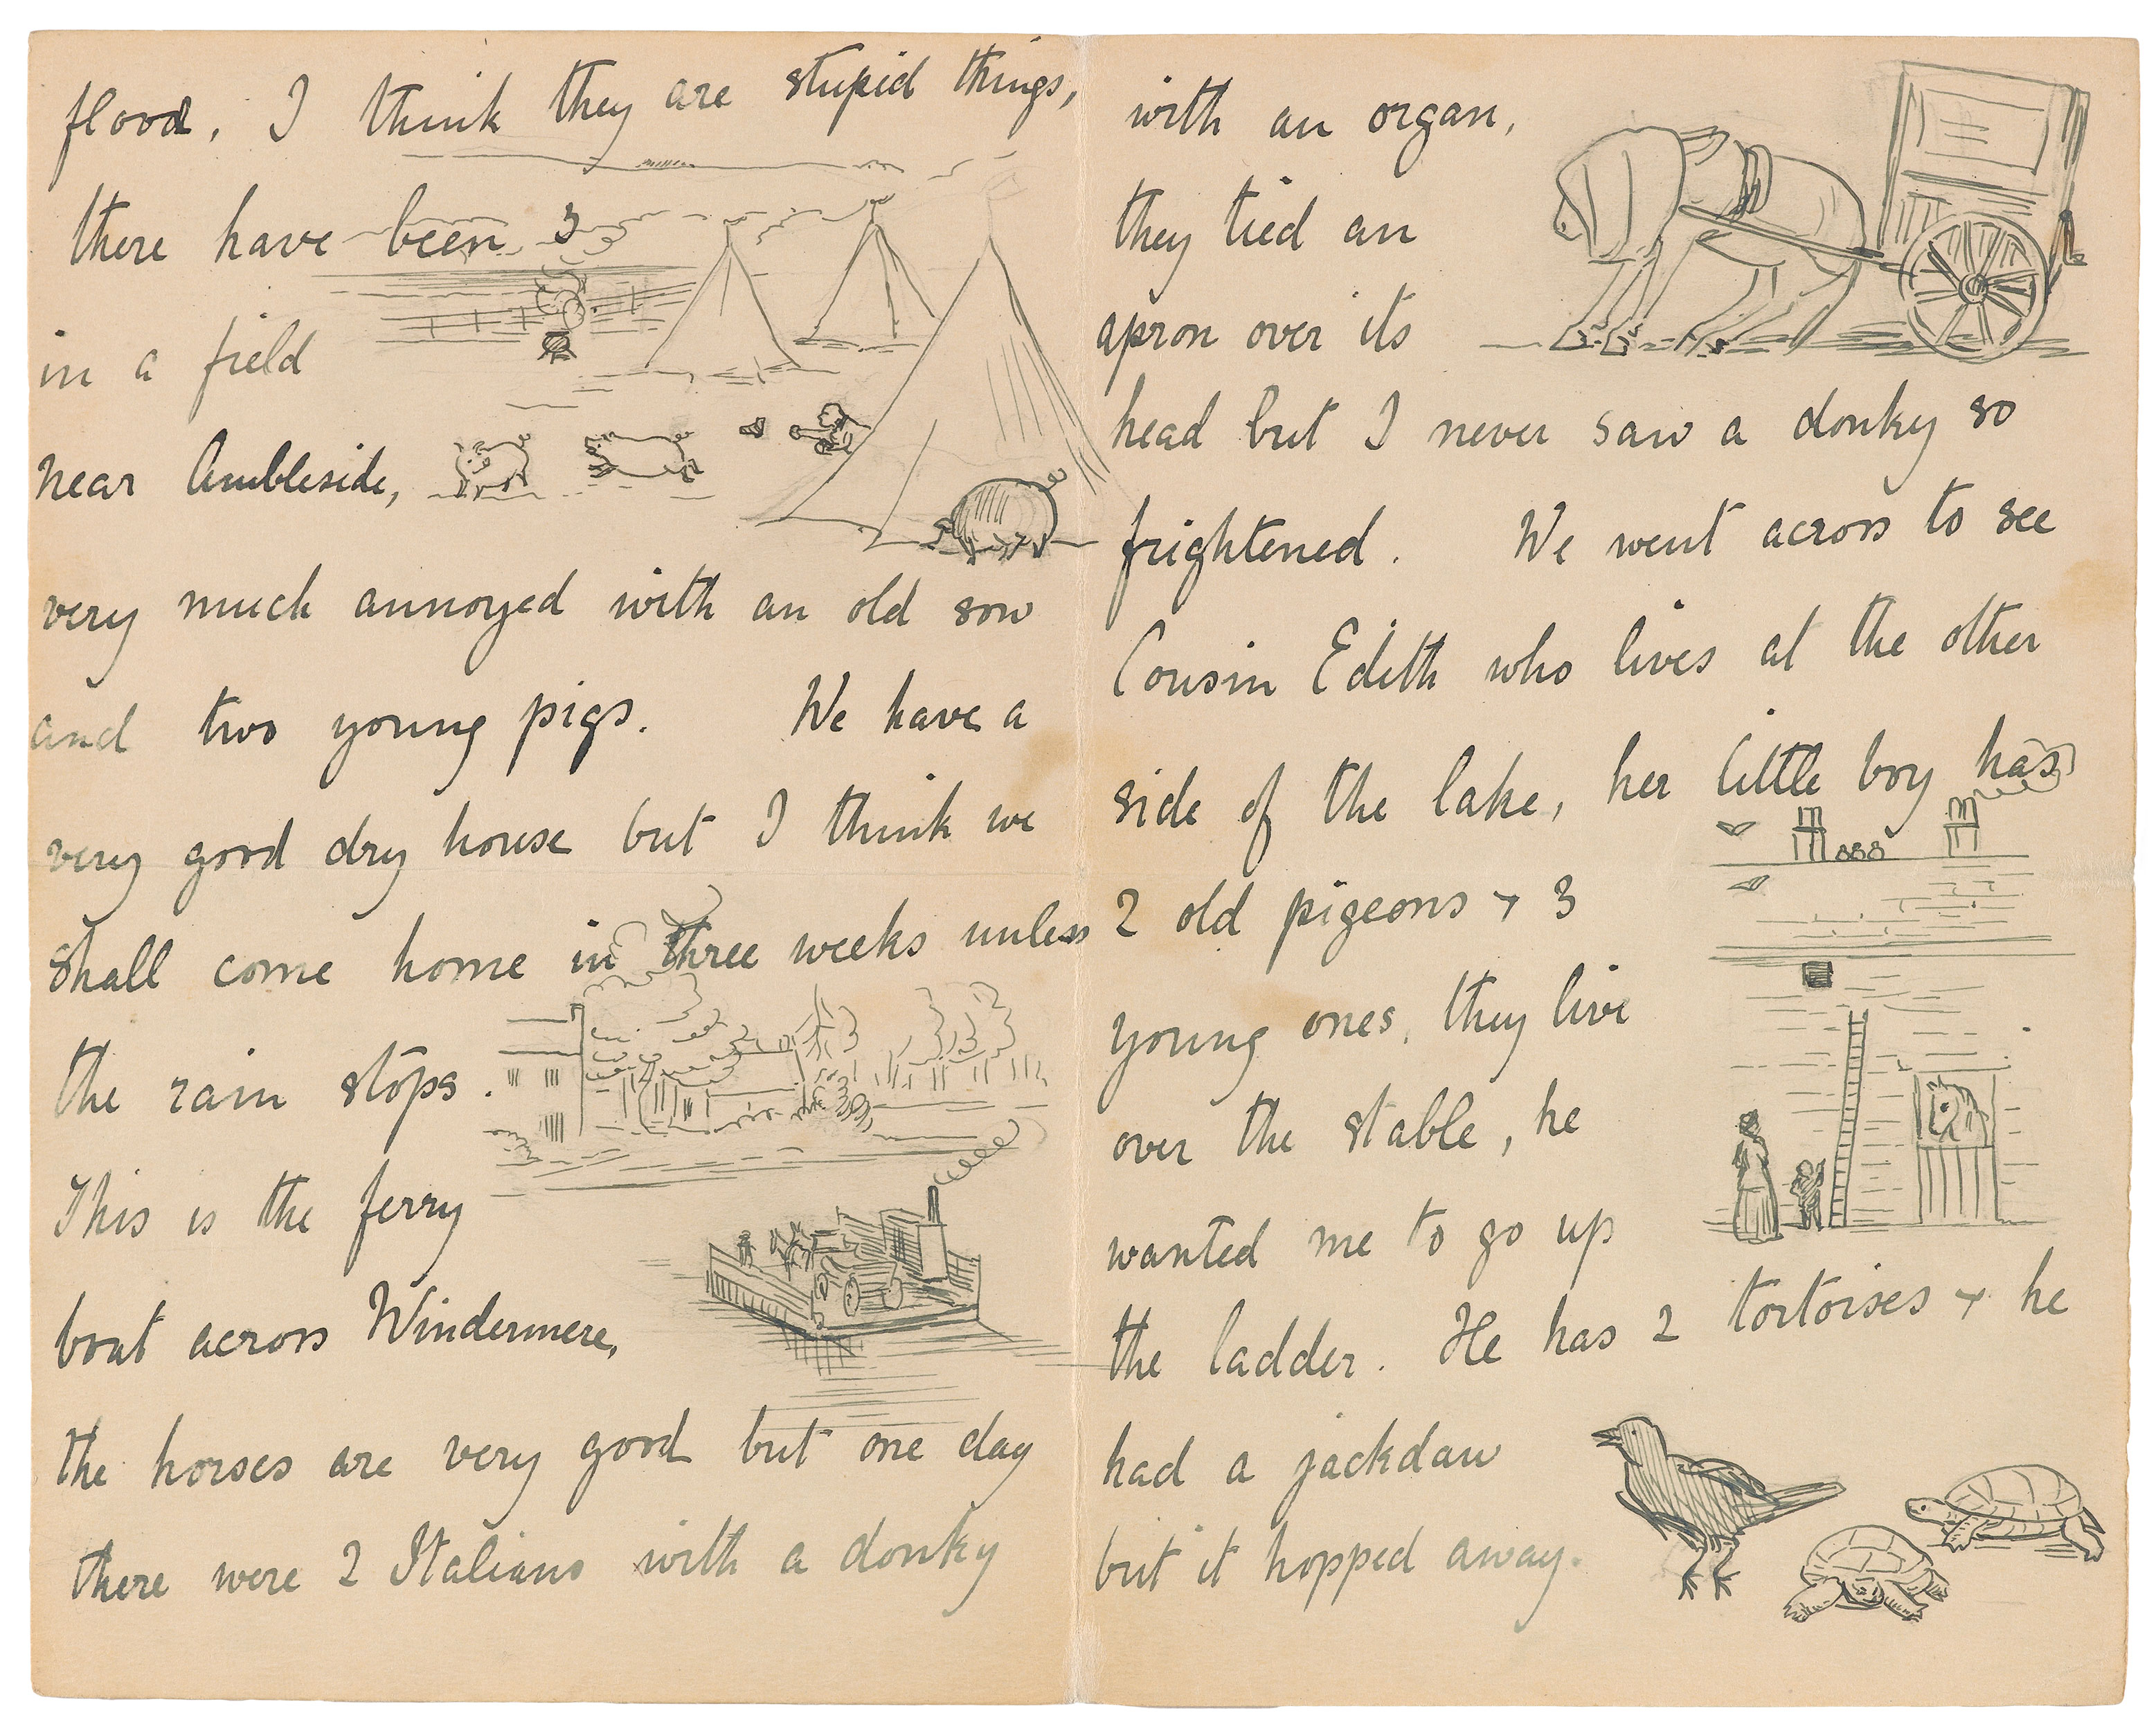 flood, I think they are stupid things,
there have been 3
in a field
near Ambleside,
very much annoyed with an old sow
and two young pigs. We have a
very good dry house but I think we
shall come home in three weeks unless
the rain stops.
This is the ferry
boat across Windermere,
the horses are very good but one day
there were 2 Italians with a donky
with an organ,
they tied an
apron over its
head but I never saw a donky so
frightened. We went across to see
Cousin Edith who lives at the other
side of the lake, her little boy has
2 old pigeons + 3
young ones, they live
over the stable, he
wanted me to go up
the ladder. He has 2 tortoises + he
had a jackdaw
but it hopped away.